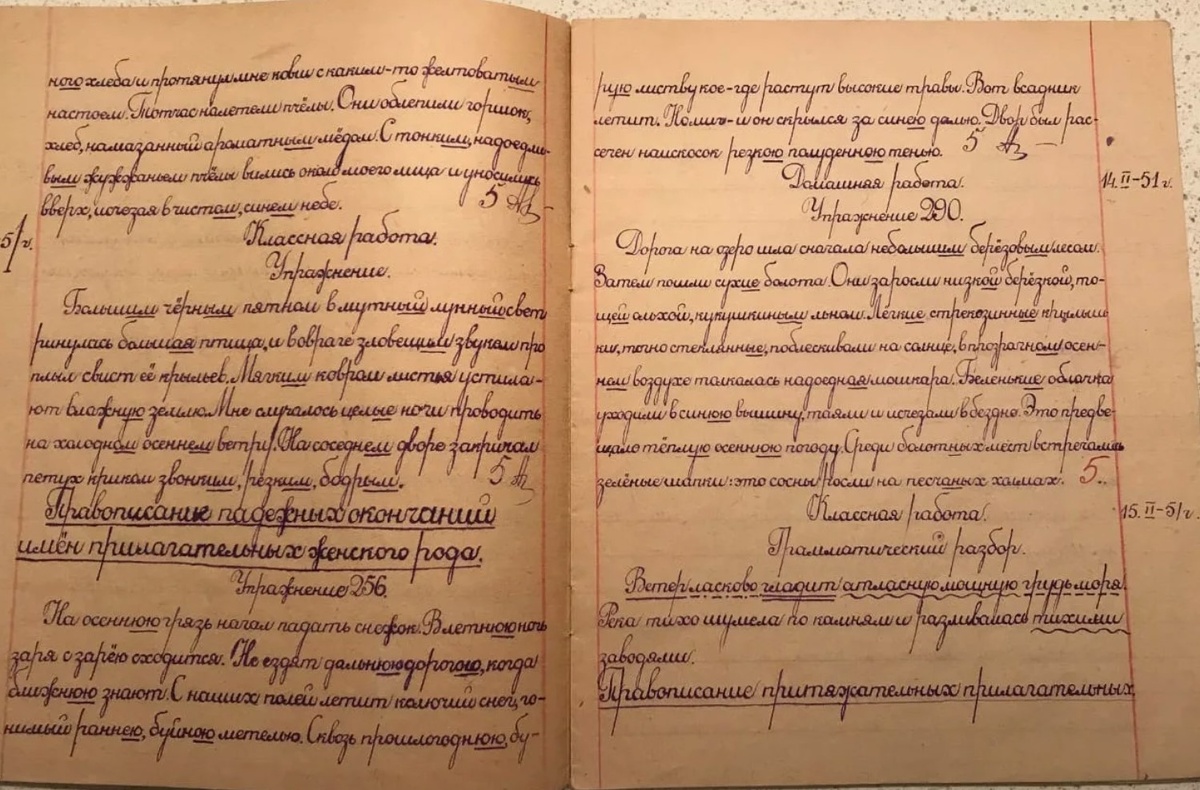 ного хлеба и протянул мне ковш с каким-то желтоватым
настоем. Тотчас налетели пчёлы. Они облепили горшок,
хлеб, намазанный ароматным мёдом. С тонким, надоедли-
вым жужжаньем пчёлы вились около моего лица и уносились
вверх, исчезая в чистом, синем небе. 5
5/г.
Классная работа.
Упражнение.
Большим чёрным пятном в мутный лунный свет
ринулась большая птица, и в овраге зловещим звуком про
плыл свист её крыльев. Мягким ковром листья устила-
ют влажную землю. Мне случалось целые ночи проводить
на холодном осеннем ветру. На соседнем дворе закричал
петух криком звонким, резким, бодрым. 5
Правописание падежных окончаний
имён прилагательных женского рода.
Упражнение 256.
На осеннюю грязь начал падать снежок. В летнюю ночь
заря с зарёю сходится. Не ездят дальнюю дорогою, когда
ближнюю знают. С наших полей летит колючий снег, го-
нимый раннею, буйною метелью. Сквозь прошлогоднюю, бу-
рую листву кое-где растут высокие травы. Вот всадник
летит. Но миг-и он скрылся за синею далью. Двор был рас-
сечен наискосок резкою полуденною тенью. 5
Домашняя работа. 14.II-51 г.
Упражнение 290.
Дорога на озеро шла сначала небольшим берёзовым лесом.
Затем пошли сухие болота. Они заросли низкой берёзкой, то-
щей ольхой, кукушкиным льном. Лёгкие, стрекозинные крылыш
ки, точно стеклянные, поблескивали на солнце, в прозрачном осен-
нем воздухе толкалась надоедная мошкара. Беленькие облачка
уходили в синюю вышину, таяли и исчезали в бездне. Это предве-
щало тёплую осеннюю погоду. Среди болотных мест встречались
зелёные шапки: это сосны росли на песчаных холмах. 5..
Классная работа. 15.II-51 г.
Грамматический разбор.
Ветер ласково гладит атласную мощную грудь моря.
Река тихо шумела по камням и разливалась тихими
заводями.
Правописание притяжательных прилагательных